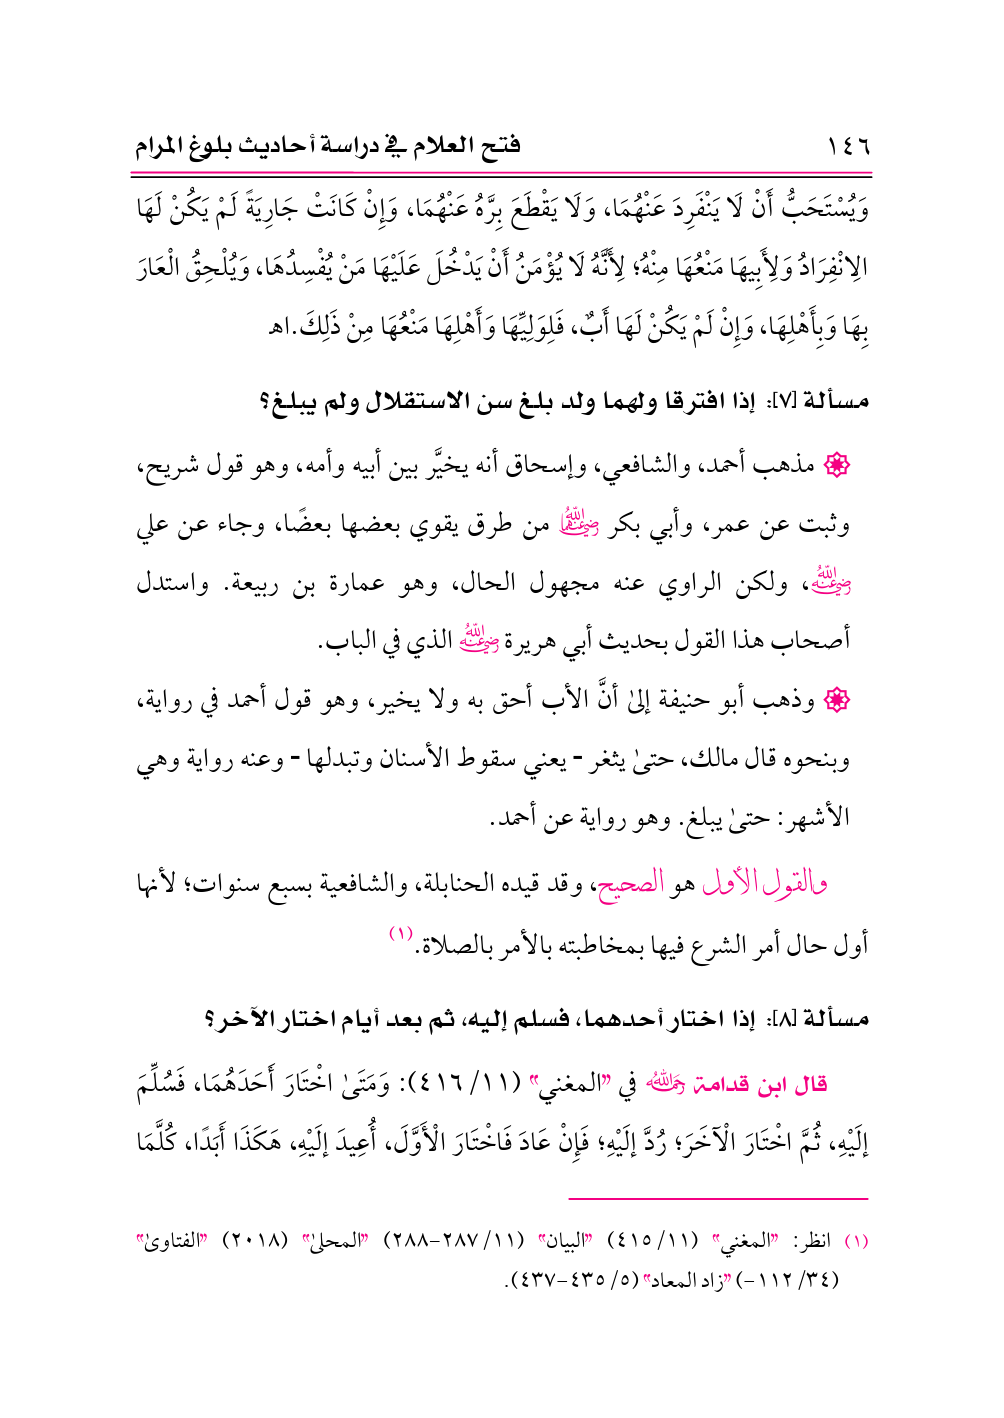 ١٤٦ فتح العلام في دراسة أحاديث بلوغ المرام
وَيُسْتَحَبُّ أَنْ لَا يَنْفَرِدَ عَنْهُمَا، وَلَا يَقْطَعَ بِرَّهُ عَنْهُمَا، وَإِنْ كَانَتْ جَارِيَةً لَمْ يَكُنْ لَهَا
الِانْفِرَادُ وَلِأَبِيهَا مَنْعُهَا مِنْهُ؛ لِأَنَّهُ لَا يُؤْمَنُ أَنْ يَدْخُلَ عَلَيْهَا مَنْ يُفْسِدُهَا، وَيُلْحِقُ الْعَارَ
بِهَا وَبِأَهْلِهَا، وَإِنْ لَمْ يَكُنْ لَهَا أَبٌ، فَلِوَلِيِّهَا وَأَهْلِهَا مَنْعُهَا مِنْ ذَلِكَ.اهـ
مسألة [٧]: إذا افترقا ولهما ولد بلغ سن الاستقلال ولم يبلغ؟
مذهب أحمد، والشافعي، وإسحاق أنه يخيَّر بين أبيه وأمه، وهو قول شريح،
وثبت عن عمر، وأبي بكر رضي الله عنهما من طرق يقوي بعضها بعضًا، وجاء عن علي
رضي الله عنه، ولكن الراوي عنه مجهول الحال، وهو عمارة بن ربيعة. واستدل
أصحاب هذا القول بحديث أبي هريرة رضي الله عنه الذي في الباب.
وذهب أبو حنيفة إلىٰ أنَّ الأب أحق به ولا يخير، وهو قول أحمد في رواية،
وبنحوه قال مالك، حتىٰ يثغر - يعني سقوط الأسنان وتبدلها - وعنه رواية وهي
الأشهر: حتىٰ يبلغ. وهو رواية عن أحمد.
والقول الأول هو الصحيح، وقد قيده الحنابلة، والشافعية بسبع سنوات؛ لأنها
أول حال أمر الشرع فيها بمخاطبته بالأمر بالصلاة.(١)
مسألة [٨]: إذا اختار أحدهما، فسلم إليه، ثم بعد أيام اختار الآخر؟
قال ابن قدامة رحمه الله في "المغني" (١١/ ٤١٦): وَمَتَىٰ اخْتَارَ أَحَدَهُمَا، فَسُلِّمَ
إلَيْهِ، ثُمَّ اخْتَارَ الْآخَرَ؛ رُدَّ إلَيْهِ؛ فَإِنْ عَادَ فَاخْتَارَ الْأَوَّلَ، أُعِيدَ إلَيْهِ، هَكَذَا أَبَدًا، كُلَّمَا
(١) انظر: "المغني" (١١/ ٤١٥) "البيان" (١١/ ٢٨٧-٢٨٨) "المحلىٰ" (٢٠١٨) "الفتاوىٰ"
(٣٤/ ١١٢-) "زاد المعاد" (٥/ ٤٣٥-٤٣٧).